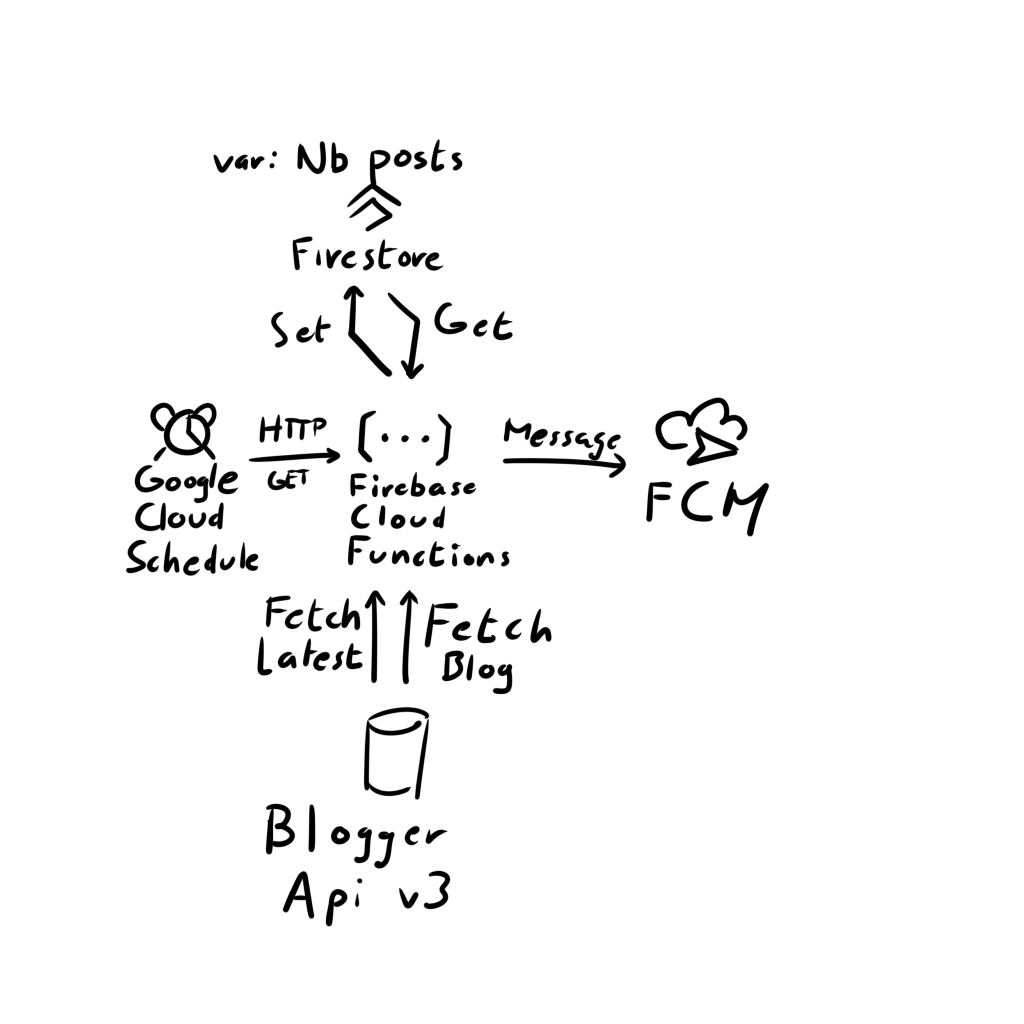 var: Nb posts
Firestore
Set
Get
HTTP
GET
(...)
Message
Google
Cloud
Schedule
Firebase
Cloud
Functions
FCM
Fetch
Latest
Fetch
Blog
Blogger
Api v3